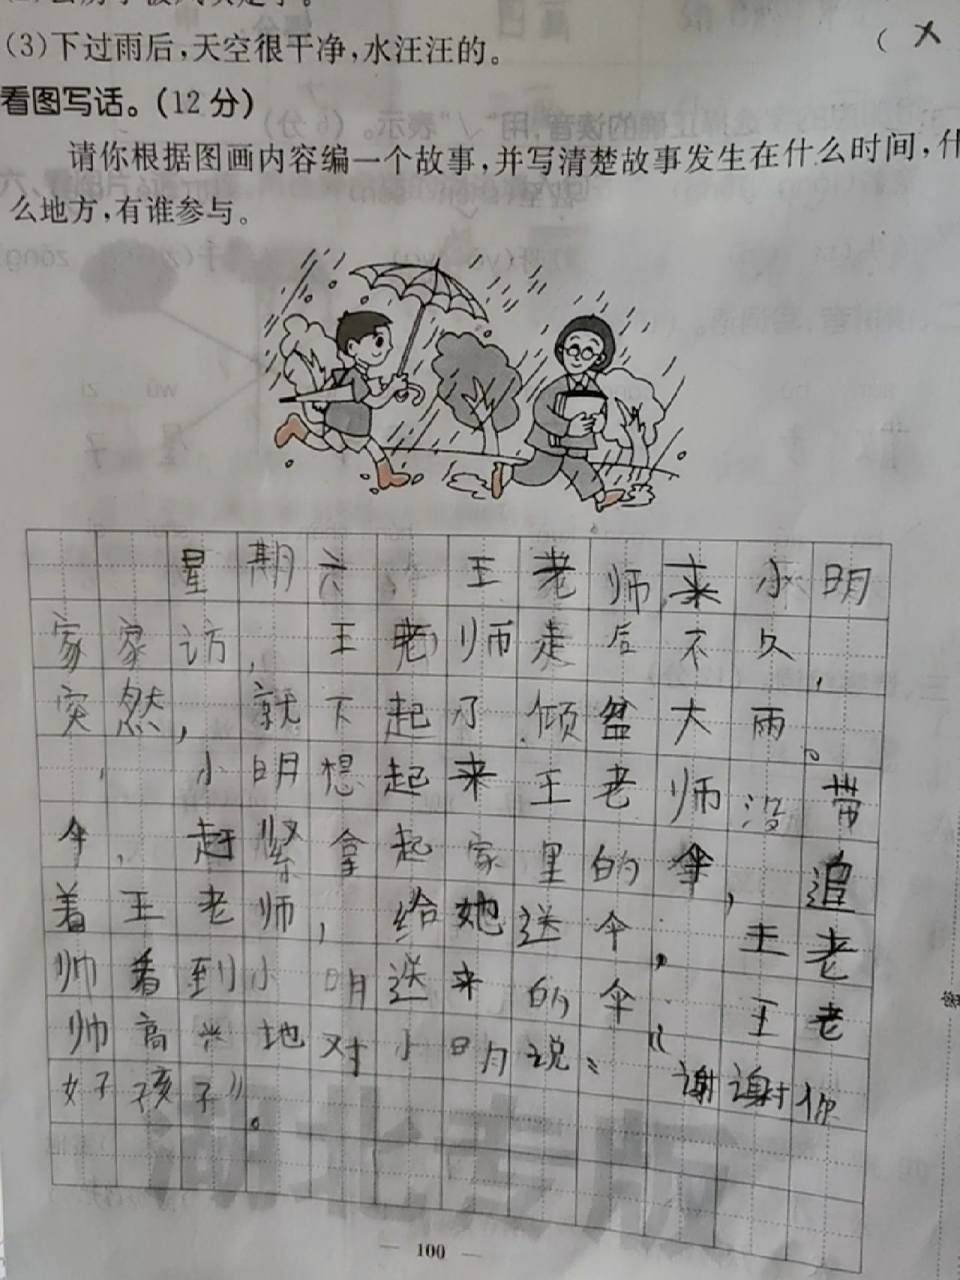 (3)下过雨后,天空很干净,水汪汪的。 ( ×
看图写话。(12分)
请你根据图画内容编一个故事,并写清楚故事发生在什么时间,什
么地方,有谁参与。
星期六,王老师来小明
家家访,王老师走后不久,
突然,就下起了倾盆大雨。
小明想起来王老师没带
伞,赶紧拿起家里的伞,追
着王老师,给她送伞,王老
师看到小明送来的伞,王老
师高兴地对小明说:“谢谢你
好孩子”。
湖北专版
— 100 —